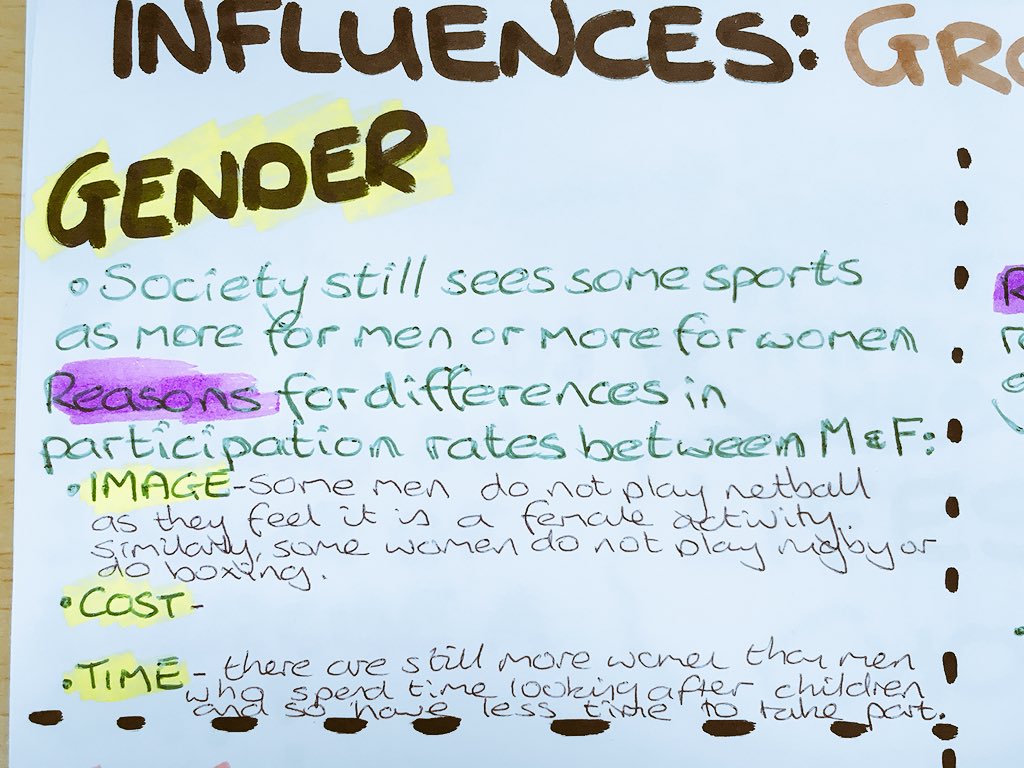 INFLUENCES: GRO
GENDER
• Society still sees some sports
as more for men or more for women
Reasons for differences in
participation rates between M & F:
• IMAGE - some men do not play netball
as they feel it is a female activity.
similarly, some women do not play rugby or
do boxing.
• COST -
• TIME - there are still more women than men
who spend time looking after children
and so have less time to take part.